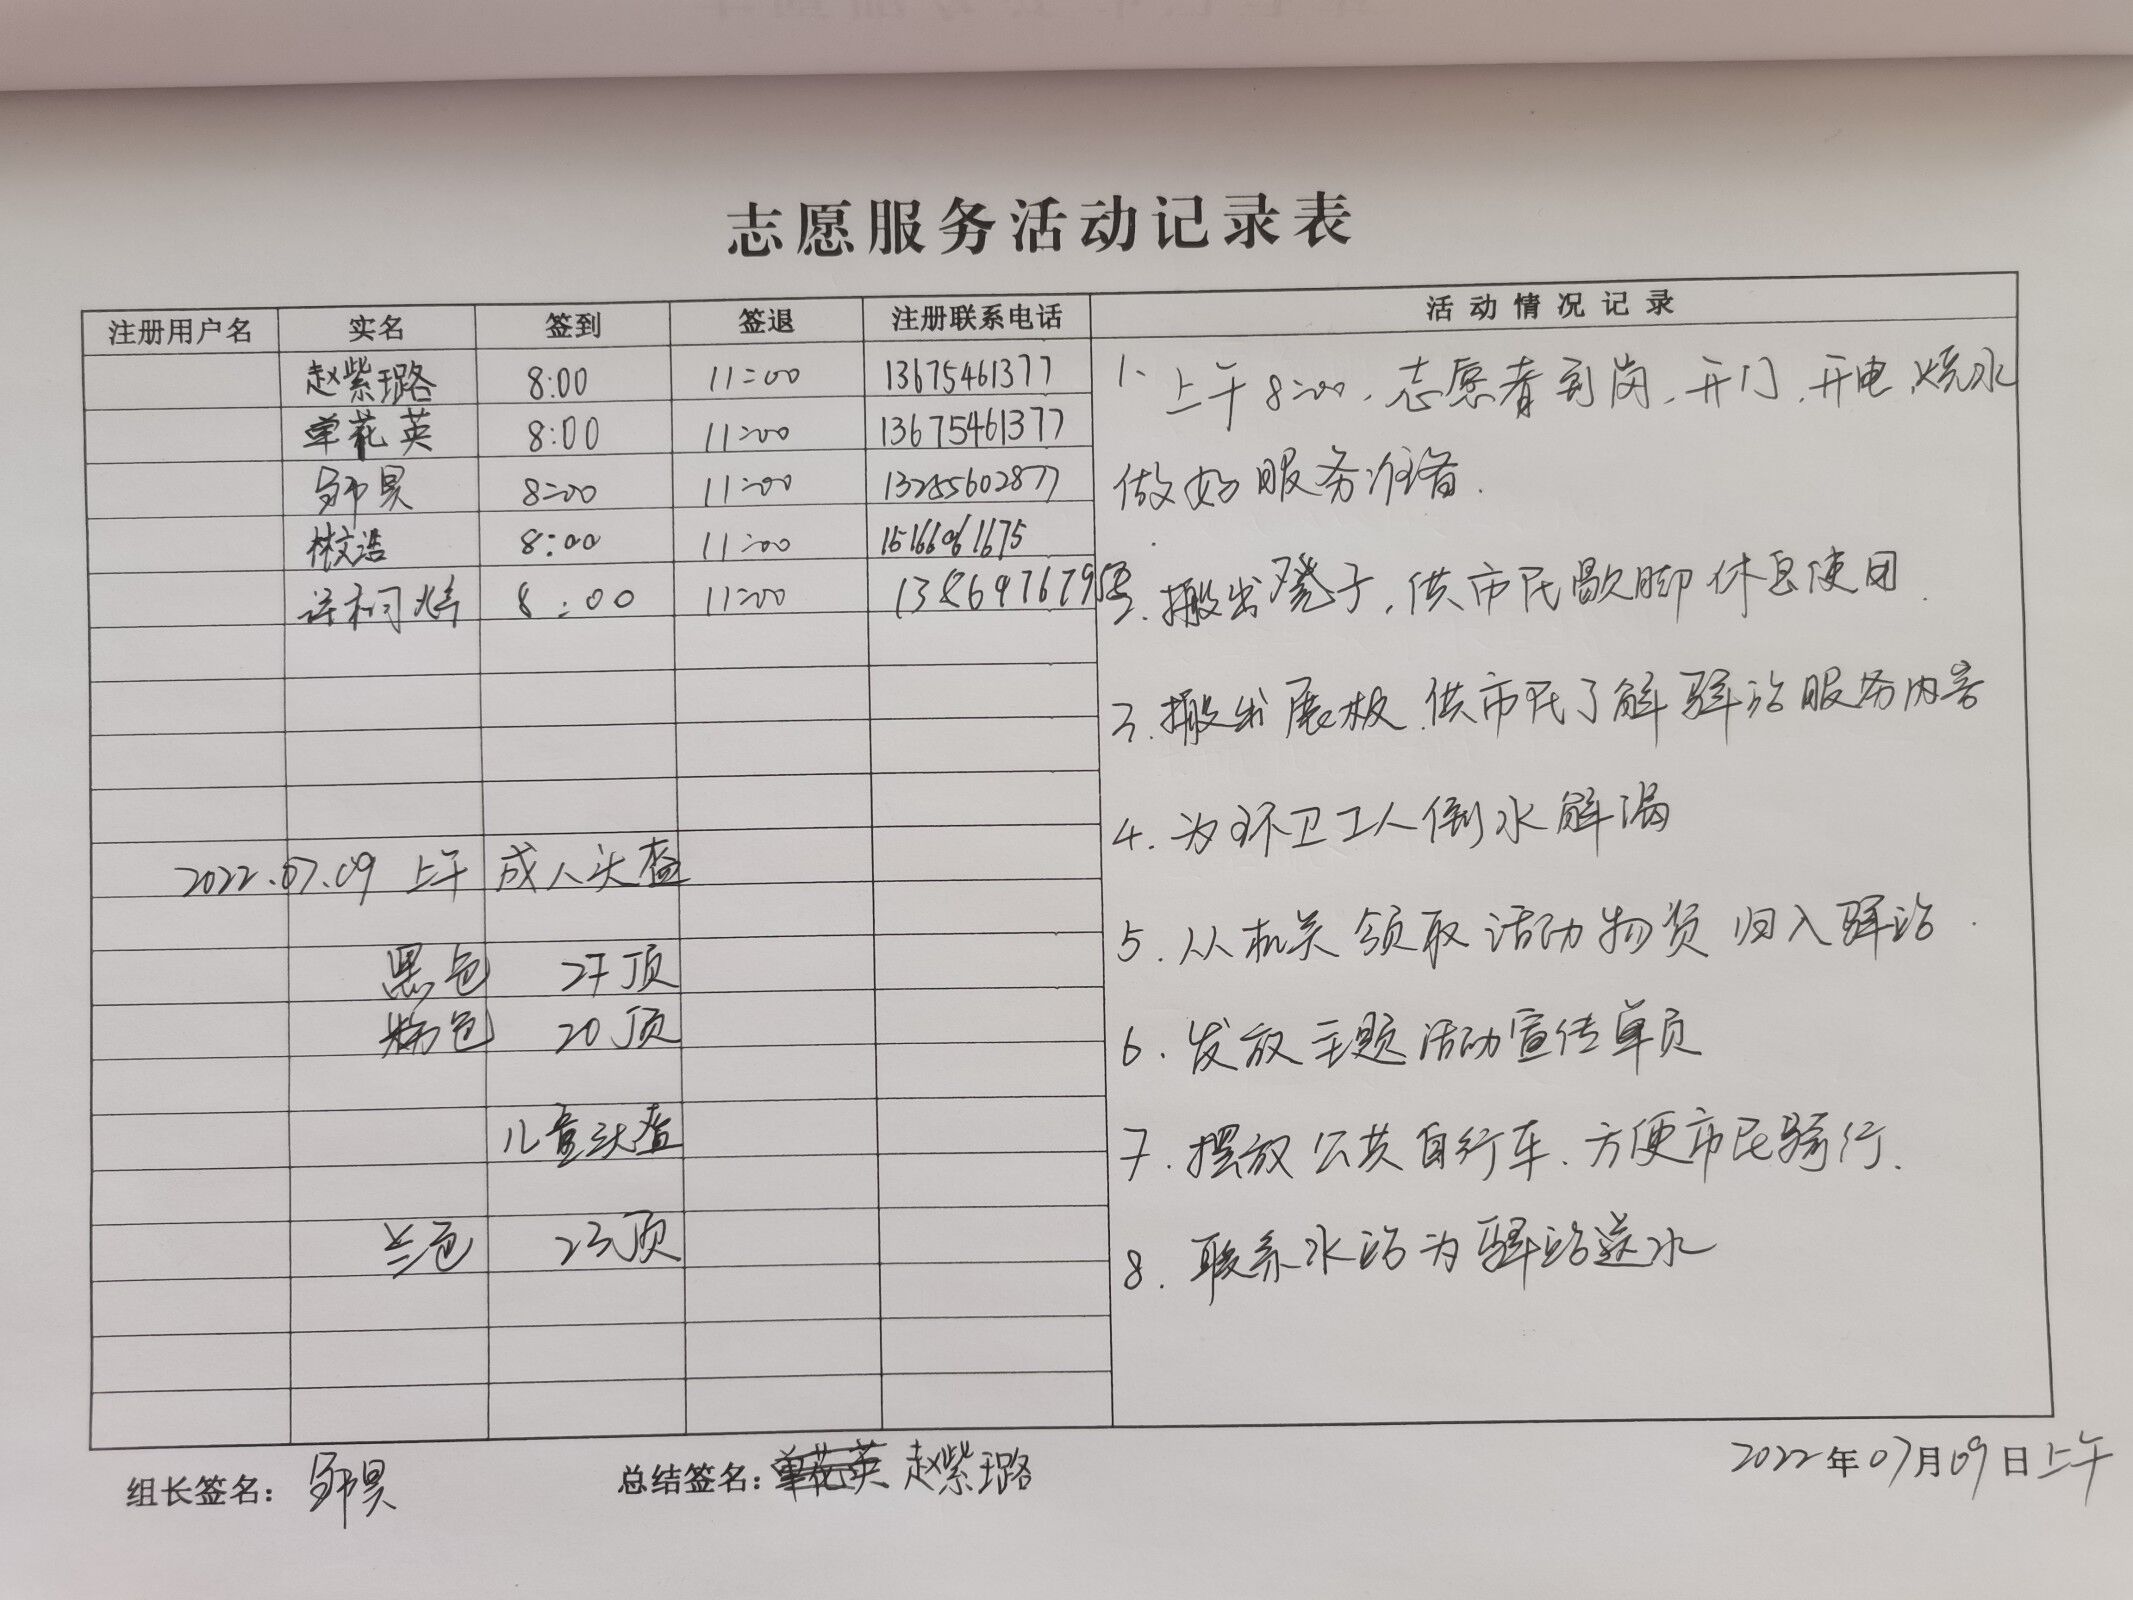 志愿服务活动记录表
注册用户名 实名 签到 签退 注册联系电话 活动情况记录
赵紫璐 8:00 11:00 13675461377
单花英 8:00 11:00 13675461377
邹昊 8:00 11:00 13255602877
林文浩 8:00 11:00
8:00 11:00
1、上午8:00，志愿者到岗，开门，开电，烧水
做好服务准备.
2.搬出凳子，供市民歇脚休息使用.
3.搬出展板，供市民了解驿站服务内容
4.为环卫工人倒水解渴
5.从机关领取活动物资归入驿站.
6.发放主题活动宣传单页
7.摆放公共自行车、方便市民骑行.
8.联系水站为驿站送水
2022.07.09 上午 成人头盔
黑色 27顶
粉色 20顶
儿童头盔
兰色 23顶
组长签名：邹昊 总结签名：单花英 赵紫璐 2022年07月09日上午